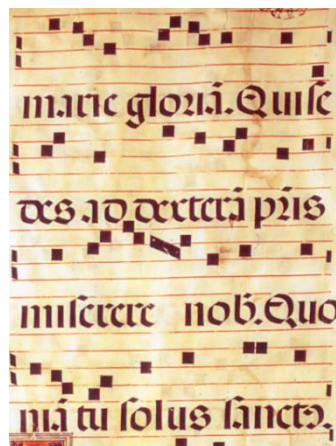 marie gloriā. Quise
des ad dexterā pr̄is
miserere nob. Quo
niā tu solus sanctꝰ.